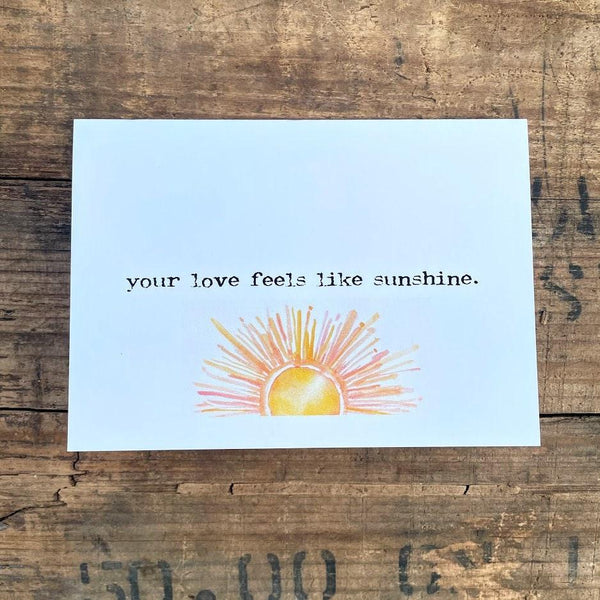 your love feels like sunshine.
50.00